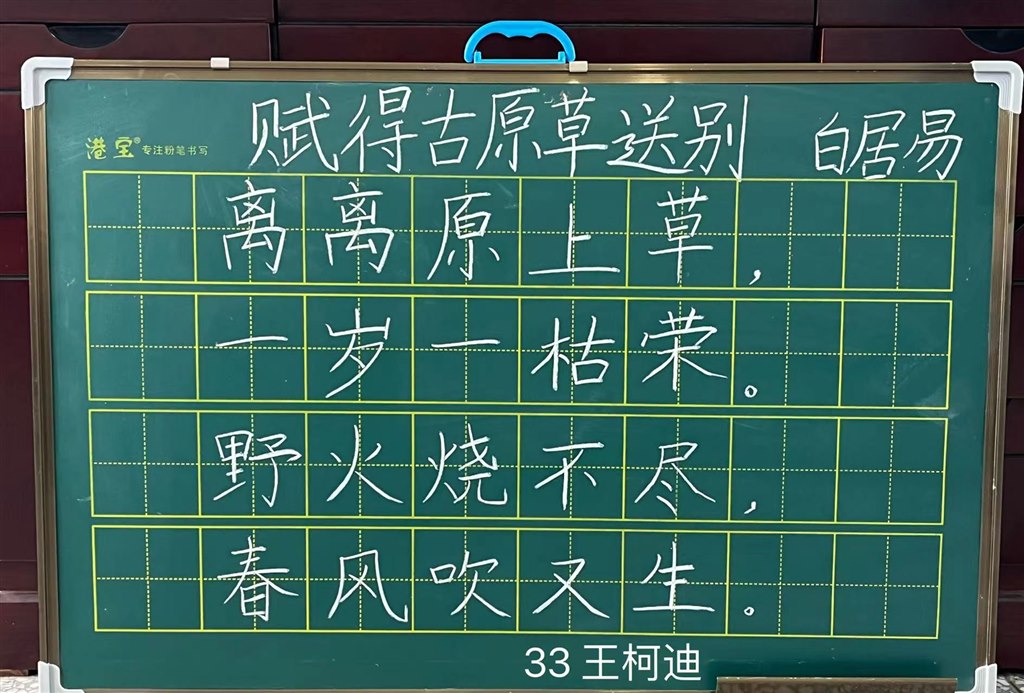 赋得古原草送别 白居易
港宝® 专注粉笔书写
离离原上草，
一岁一枯荣。
野火烧不尽，
春风吹又生。
33 王柯迪